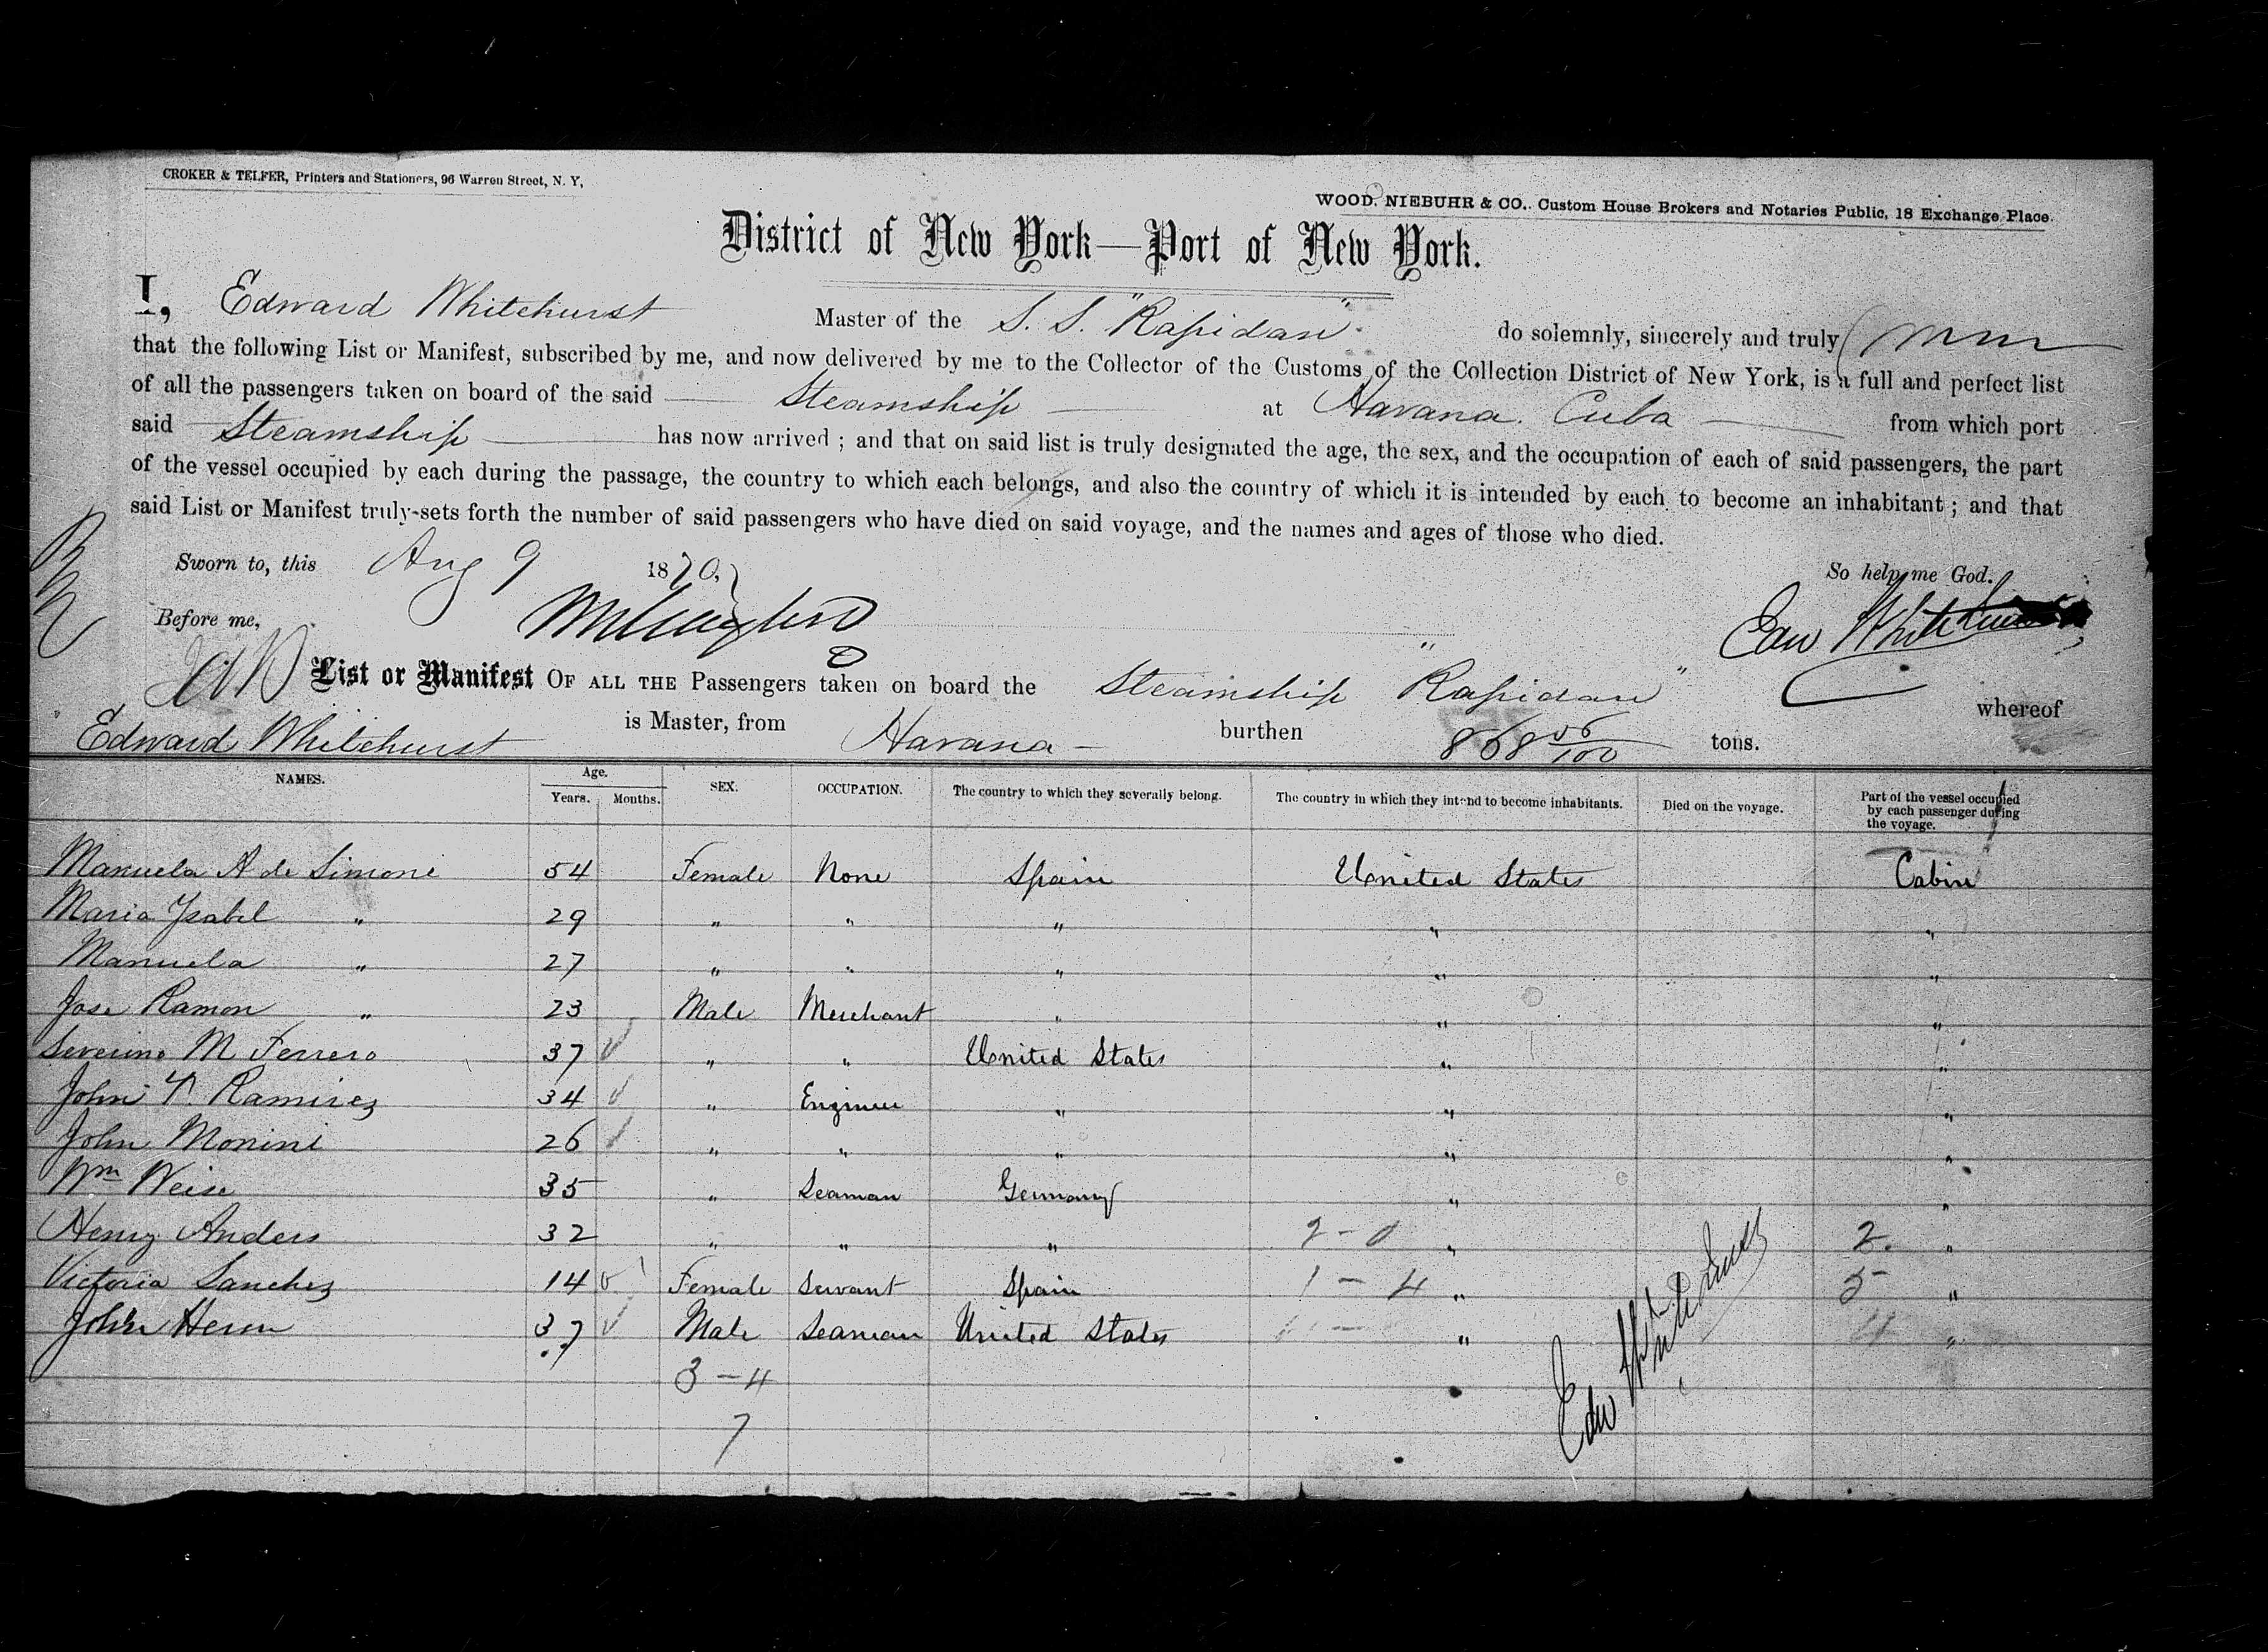 CROKER & TELFER, Printers and Stationers, 96 Warren Street, N. Y,
WOOD. NIEBUHR & CO.. Custom House Brokers and Notaries Public, 18 Exchange Place.
District of New York—Port of New York.
I, Edward Whitehurst Master of the S. S. "Rapidan" do solemnly, sincerely and truly
that the following List or Manifest, subscribed by me, and now delivered by me to the Collector of the Customs of the Collection District of New York, is a full and perfect list
of all the passengers taken on board of the said Steamship at Havana. Cuba from which port
said Steamship has now arrived ; and that on said list is truly designated the age, the sex, and the occupation of each of said passengers, the part
of the vessel occupied by each during the passage, the country to which each belongs, and also the country of which it is intended by each to become an inhabitant ; and that
said List or Manifest truly sets forth the number of said passengers who have died on said voyage, and the names and ages of those who died.
Sworn to, this Aug 9 1870, So help me God.
Before me, Edw Whitehurst
List or Manifest OF ALL THE Passengers taken on board the Steamship "Rapidan" whereof
Edward Whitehurst is Master, from Havana - burthen 868 56/100 tons.
NAMES. Age. Years. Months. SEX. OCCUPATION. The country to which they severally belong. The country in which they intend to become inhabitants. Died on the voyage. Part of the vessel occupied by each passenger during the voyage.
Manuela A de Simoni 54 Female None Spain United States Cabin
Maria Ysabel " 29 " " " " "
Manuela " 27 " " " " "
Jose Ramon " 23 Male Merchant " " "
Severino M Ferrero 37 " " United States " "
John Ramirez 34 " Engineer " " "
John Monini 26 " " " " "
Wm Weise 35 " Seaman Germany " "
Henry Anders 32 " " " 2-0 " 2. "
Victoria Sanchez 14 Female Servant Spain 1-4 " 5 "
John Heron 37 Male Seaman United States " 4 "
3-4
7
Edw Whitehurst